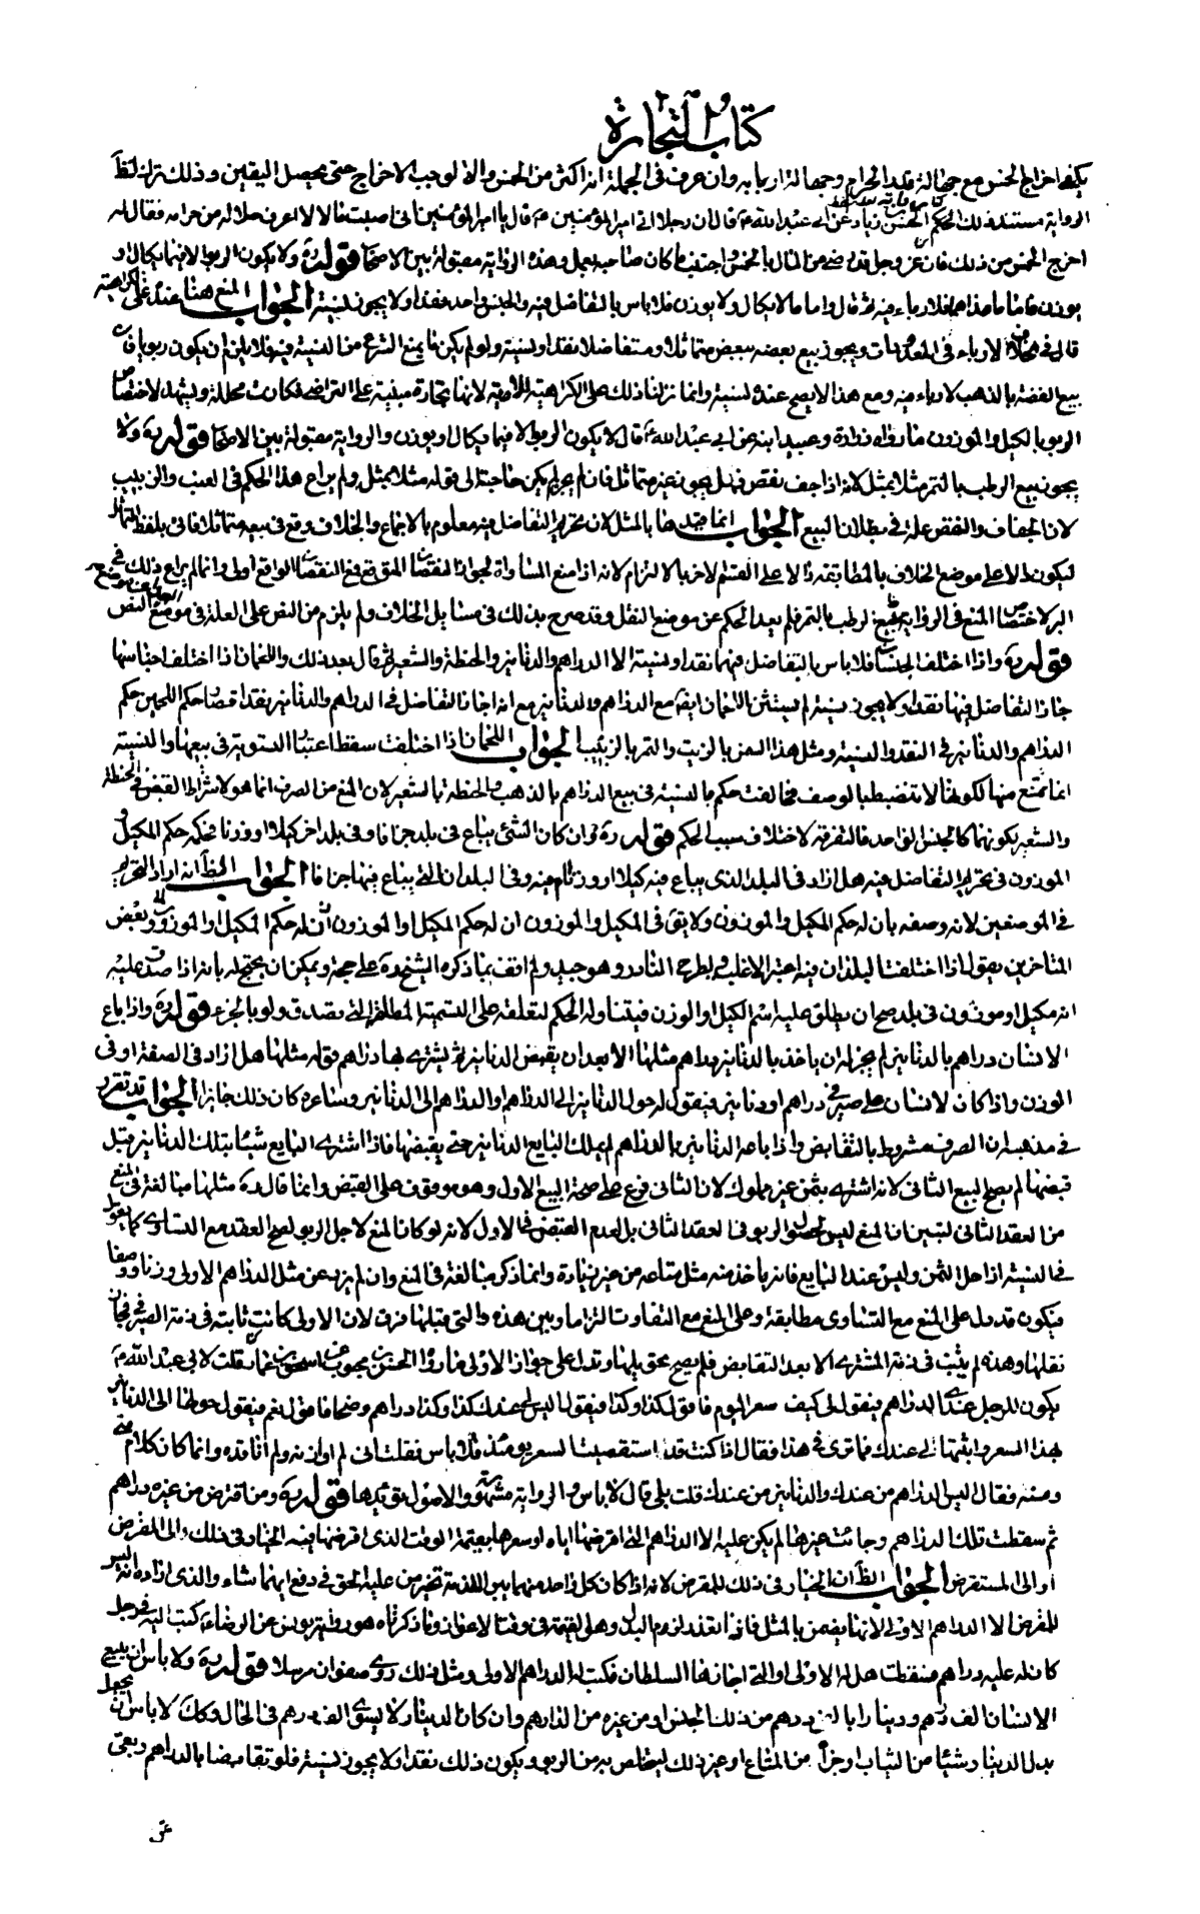 كتاب التجارة
يكفي اخراج الخمس مع جهالة قدر الحرام وجهالة اربابه وان عرف في الجملة انه اكثر من الخمس والا لوجب الاخراج حتى يحصل اليقين وذلك ترك لظاهر
الرواية مستند ذلك الحكم الحسن زياد عن ابي عبد الله ع قال ان رجلا اتى امير المؤمنين ع قال يا امير المؤمنين اني اصبت مالا لا اعرف حلاله من حرامه فقال له
اخرج الخمس من ذلك فان عز وجل قد رضى من المال بالخمس واجتنب ما كان صاحبه يعمل وهذه الرواية مقبولة بين الاصحاب قوله ره ولا يكون الربوا الا فيما يكال او
يوزن فاما ما عداهما فلا رباء فيه ثم قال واما ما لا يكال ولا يوزن فلا باس بالتفاضل فيه والجنس واحد نقدا ولا يجوز نسيئة الجواب المنع هنا عنده على الكراهية
قال في لا رباء في المعدودات ويجوز بيع بعضه ببعض متماثلا ومتفاضلا نقدا ونسيئة ولو لم يكن فا يمنع الشرع من النسيئة فيه فلا يلزم ان يكون ربويا فان
بيع الفضة بالذهب لا رباء فيه ومع هذا لا يصح عنده نسيئة وانما نزلنا ذلك على الكراهية للاوية لانها تجارة مبنية على التراضي فكانت محللة ويشهد لاختصاص
الربو بالكيل والموزون ما رواه زرارة وعبيد ابنه عن ابي عبد الله ع قال لا يكون الربوا الا فيما يكال او يوزن والرواية مقبولة بين الاصحاب قوله ره ولا
يجوز بيع الرطب بالتمر مثلا بمثل لانه اذا جف نقص فهل يجوز غير متماثل فان لم يجز لم يكن حاجة الى قوله مثلا بمثل ولم يراع هذا الحكم في العنب والزبيب
لان الجفاف والنقص علة في بطلان البيع الجواب انما قيد هنا بالمثل لان تحريم التفاضل فيه معلوم بالاجماع والخلاف وقع في بيعه متماثلا فاتى بلفظ التماثل
ليكون دالا على موضع الخلاف بالمطابقة دالا على القسم الاخر بالالتزام لانه اذا منع المساواة لجواز النقصان المتوقع فمع النقصان الواقع اولى وانما لم يراع ذلك في
البر لاختصاص المنع في الرواية ببيع الرطب بالتمر فلم يعد الحكم عن موضع النقل وقد صرح بذلك في مسايل الخلاف ولم يلزم من النص على العلة في موضع النص
قوله ره واذا اختلف الجنسان فلا باس بالتفاضل فيهما نقدا ونسيئة الا الدراهم والدنانير والحنطة والشعير ثم قال بعد ذلك واللحمان اذا اختلف اجناسها
جاز التفاضل فيها نقدا ولا يجوز نسيئة لم يستثن اللحمان ايضا مع الدراهم والدنانير مع انه اجاز التفاضل في الدراهم والدنانير نقدا فصار حكم اللحمين حكم
الدراهم والدنانير في النقد والنسيئة ومثل هذا السمن بالزيت والتمر بالزبيب الجواب اللحمان اذا اختلفت سقط اعتبار التسوية في بيعها والنسيئة
انما تمنع منها لكونها لا تنضبط بالوصف فخالفت حكم بالنسيئة في بيع الدراهم بالذهب والحنطة بالشعير لان المنع من الصرف انما هو لاشتراط القبض في الحنطة
والشعير بكونهما كالجنس الواحد فالتفرقة لاختلاف سبب الحكم قوله ره وان كان الشئ يباع في بلد جزافا وفي بلد اخر كيلا او وزنا فحكمه حكم المكيل و
الموزون في تحريم التفاضل فيه هل اراد في البلد الذي يباع فيه كيلا او وزنا فيه وفي البلدان التي يباع فيها جزافا الجواب الظاهر انه اراد التحريم
في الموضعين لانه وصفه بان له حكم المكيل والموزون ولا يبقى في المكيل والموزون ان له حكم المكيل او الموزون ان له حكم المكيل والموزون وبعض
المتاخرين يقول اذا اختلفت البلدان فيه اعتبر الاغلب ويطرح النادر وهو جيد ولم اقف بما ذكره الشيخ ره على حجة ويمكن ان يحتج له بانه اذا صدق عليه
انه مكيل او موزون في بلد صح ان يطلق عليه اسم الكيل او الوزن فيتناوله الحكم لتعلقه على التسمية المطلقة التي تصدق ولو بالجزء قوله ره واذا باع
الانسان دراهم بالدنانير لم يجز له ان ياخذ بالدنانير دراهم مثلها الا بعد ان يقبض الدنانير ثم يشتري بها دراهم قوله مثلها هل اراد في الصفة او في
الوزن واذا كان لانسان على صيرفي دراهم او دنانير فيقول له حول الدنانير الى الدراهم او الدراهم الى الدنانير وساعره كان ذلك جايزا الجواب قد تقرر
في مذهبه ان الصرف مشروط بالتقابض واذا باعه الدنانير بالدراهم لم يملك البايع الدنانير حتى يقبضها فاذا اشترى البايع شيئا بتلك الدنانير قبل
قبضها لم يصح البيع الثاني لانه اشترى بثمن غير مملوك لان الثاني فرع على صحة البيع الاول وهو موقوف على القبض وانما قال ره مثلها مبالغة في المنع
من العقد الثاني لتبين ان المنع ليس لحصول الربو في العقد الثاني بل لعدم القبض في الاول لانه لو كان المنع لاجل الربو لصح العقد مع التساوي كما يقول
في النسيئة اذا حل الثمن وليس عند البايع فانه ياخذ منه مثل متاعه من غير زيادة وانما ذكر مبالغة في المنع وان لم يزد عن مثل الدراهم الاولى وزنا ووصفا
فيكون قد دل على المنع مع التساوي مطابقة وعلى المنع مع التفاوت التزاما وبين هذه والتي قبلها فرق لان الاولى كانت ثابتة في ذمة الصيرفي فجاز
نقلها وهذه لم يثبت في ذمة المشتري الا بعد التقابض فلم يصح تحويلها وتدل على جواز الاولى ما رواه الحسن بن محبوب عن اسحق بن عمار قلت لابي عبد الله ع
يكون للرجل عندي الدراهم فيقول لي كيف سعر اليوم فاقول كذا وكذا فيقول اليس لي عندك كذا وكذا دراهم وضحا فاقول نعم فيقول حولها الى الدنانير
بهذا السعر واثبتها لي عندك فما ترى في هذا فقال اذا كنت قد استقصيت السعر يومئذ فلا باس فقلت اني لم اوازنه ولم اناقده وانما كان كلام مني
ومنه فقال اليس الدراهم من عندك والدنانير من عندك قلت بلى قال لا باس والرواية مشهورة والاصول تؤيدها قوله ره ومن اقترض من غيره دراهم
ثم سقطت تلك الدراهم وجائت غيرها لم يكن عليه الا الدراهم التي اقرضها اياه او سعرها بقيمة الوقت الذي اقرضها فيه الخيار في ذلك الى المقرض
او الى المستقرض الجواب الظاهر ان الخيار في ذلك للمقرض لانه اذا كان كل واحد منهما يبرئ الذمة تخير من عليه الحق في دفع ايهما شاء والذي اراه انه ليس
للمقرض الا الدراهم الاولى لانها يضمن بالمثل فاذا تعذر لزم البدل وهل القيمة في وقت الاعواز وما ذكرناه هو رواية يونس عن الرضا ع كتبت اليه في رجل
كان له عليه دراهم فسقطت هل له الاولى او التي اجازها السلطان فكتب له الدراهم الاولى ومثل ذلك روى صفوان مرسلا قوله ره ولا باس ان يبيع
الانسان الف درهم ودينارا بالفي درهم من ذلك الجنس او من غيره من الدراهم وان كان الدينار لا يسوى الف درهم في الحال وكذلك لا باس ان يجعل
بدل الدينار شيئا من الثياب او جزأ من المتاع او غير ذلك ليتخلص به من الربو ويكون ذلك نقدا ولا يجوز نسيئة فلو تقابضا بالدراهم وبقى